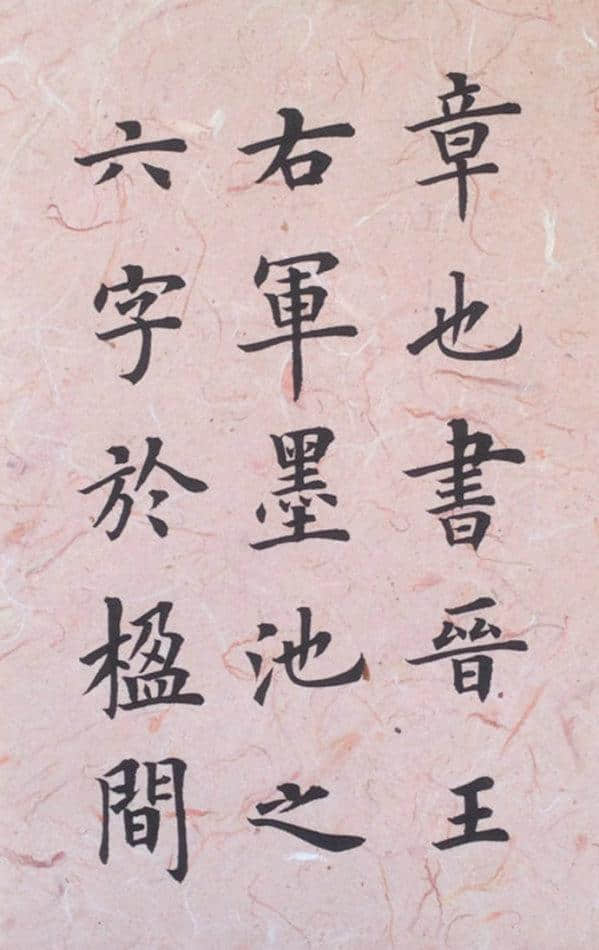 章也書晉王
右軍墨池之
六字於楹間